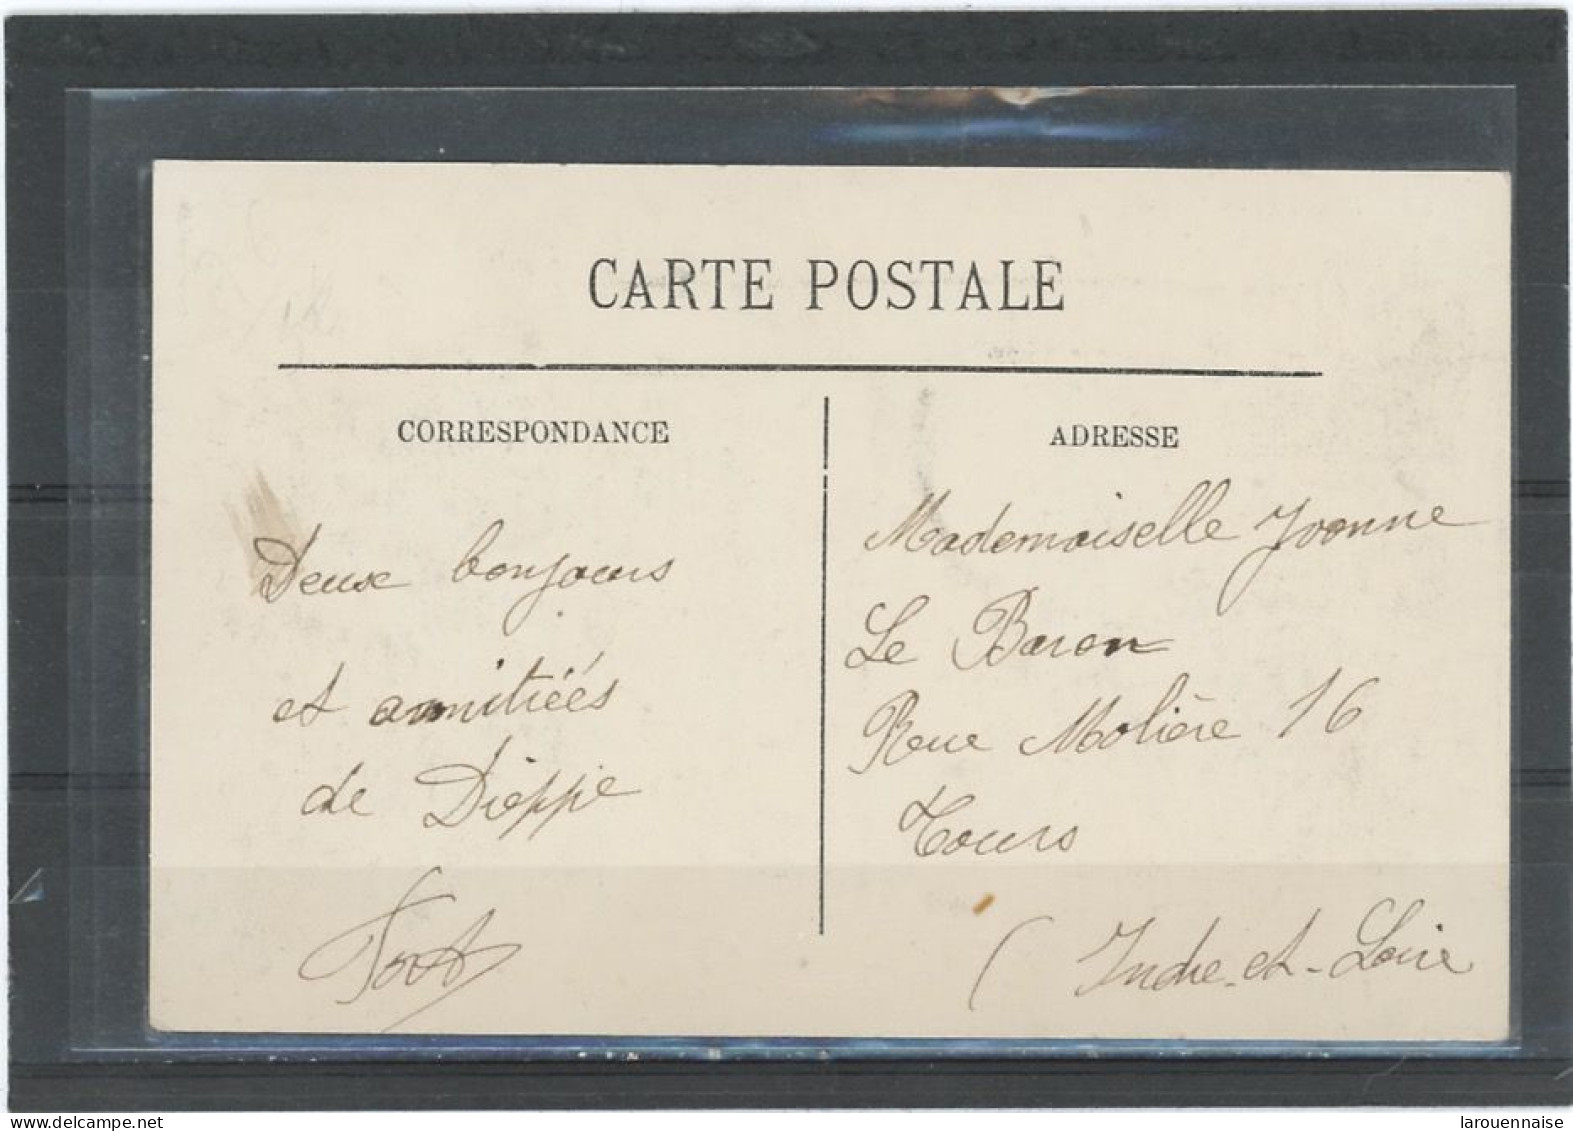 CARTE POSTALE
CORRESPONDANCE
Deux bonjours
et amnitiées
de Dieppe
ADRESSE
Mademoiselle Yvonne
Le Baron
Rue Molière 16
Tours
( Indre-et-Loire
delcampe.net
larouennaise